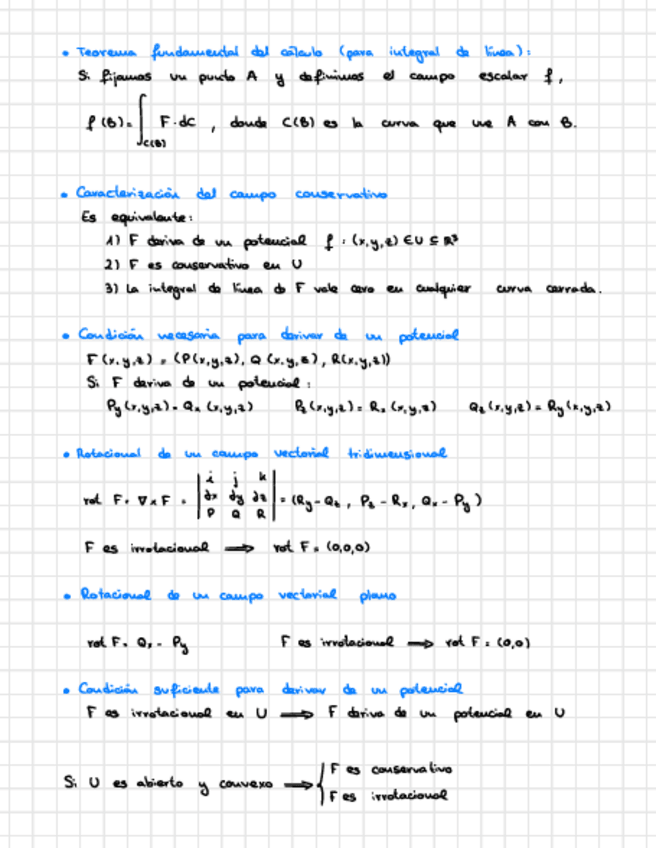 • Teorema fundamental del cálculo (para integral de línea):
Si fijamos un punto A y definimos el campo escalar f,
f(B) = ∫_{C(B)} F·dC , donde C(B) es la curva que une A con B.
• Caracterización del campo conservativo
Es equivalente:
1) F deriva de un potencial f : (x,y,z) ∈ U ⊆ R³
2) F es conservativo en U
3) La integral de línea de F vale cero en cualquier curva cerrada.
• Condición necesaria para derivar de un potencial
F(x,y,z) = (P(x,y,z), Q(x,y,z), R(x,y,z))
Si F deriva de un potencial:
Py(x,y,z) = Qx(x,y,z) Pz(x,y,z) = Rx(x,y,z) Qz(x,y,z) = Ry(x,y,z)
• Rotacional de un campo vectorial tridimensional
rot F = ∇×F = | i j k ; ∂x ∂y ∂z ; P Q R | = (Ry - Qz, Pz - Rx, Qx - Py)
F es irrotacional ⟹ rot F = (0,0,0)
• Rotacional de un campo vectorial plano
rot F = Qx - Py F es irrotacional ⟹ rot F = (0,0)
• Condición suficiente para derivar de un potencial
F es irrotacional en U ⟹ F deriva de un potencial en U
Si U es abierto y convexo ⟹ { F es conservativo
F es irrotacional